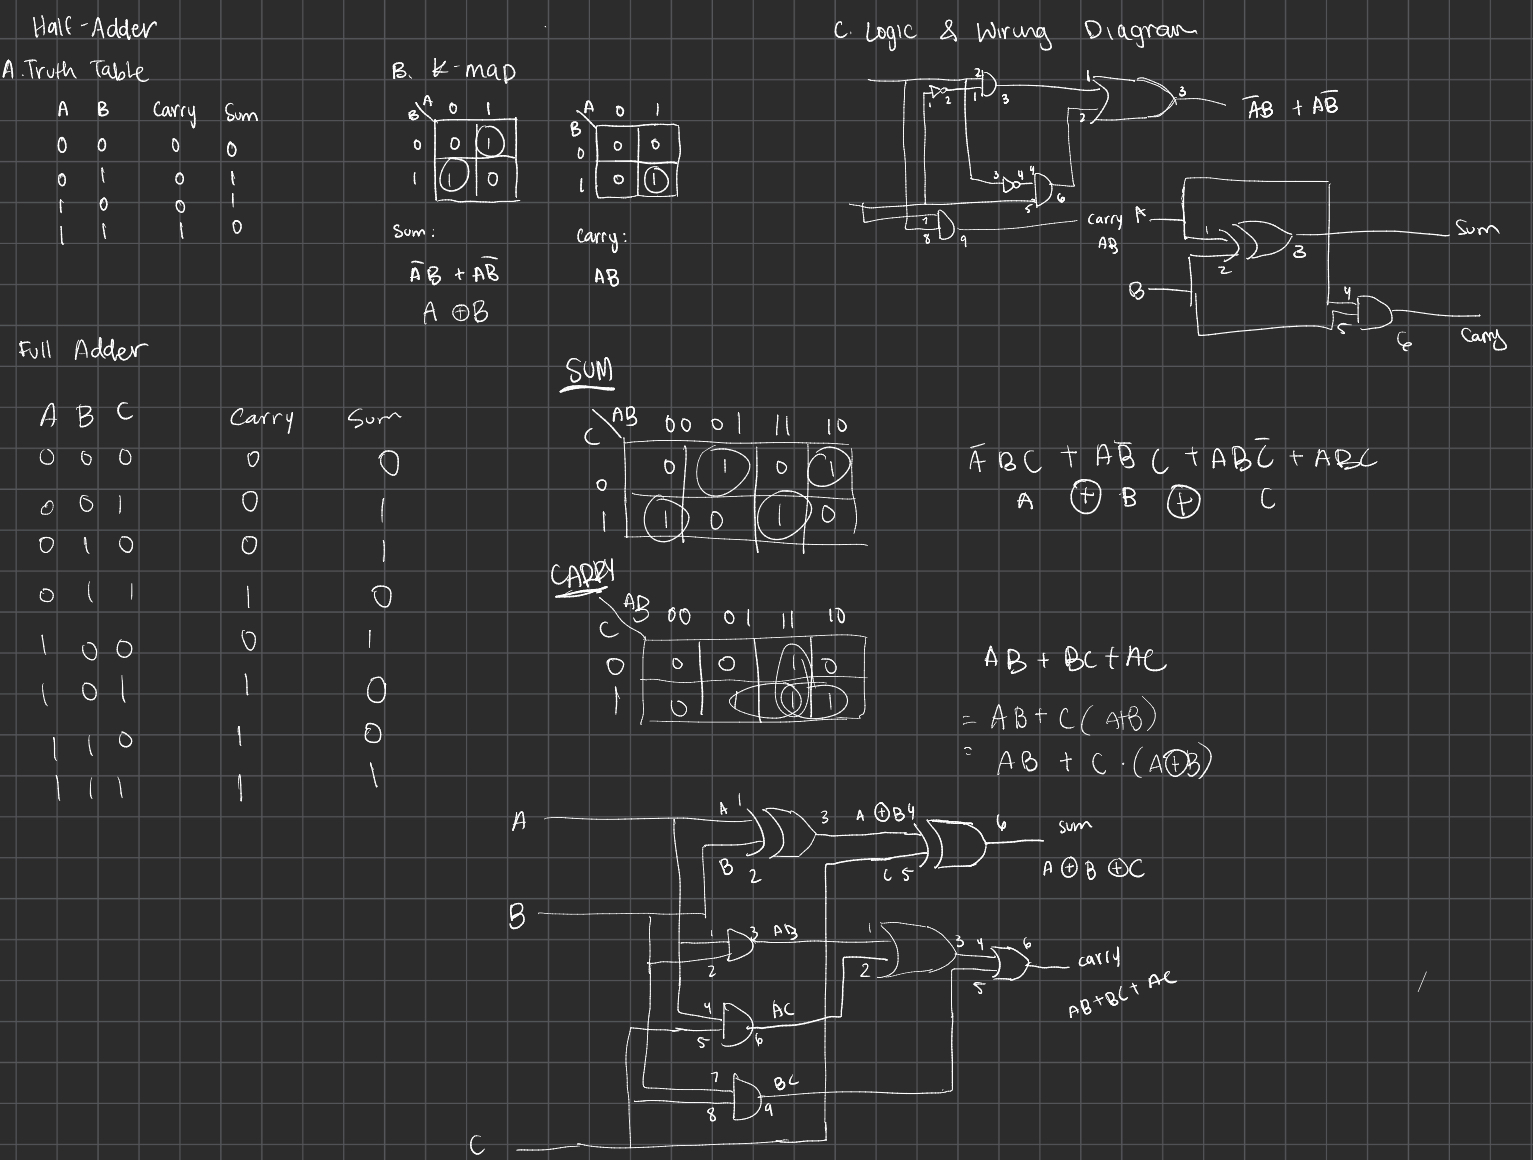 Half-Adder
A. Truth Table
A B Carry Sum
0 0 0 0
0 1 0 1
1 0 0 1
1 1 1 0
B. K-map
A 0 1
B
0 0 1
1 1 0
Sum:
A̅B + AB̅
A ⊕ B
A 0 1
B
0 0 0
1 0 1
Carry:
AB
C. Logic & Wiring Diagram
1 2
2 1 3
3 4
4 5 6
7 8 9
1 2 3
A̅B + AB̅
Carry
AB
A
B
1 2 3
Sum
4 5 6
Carry
Full Adder
A B C Carry Sum
0 0 0 0 0
0 0 1 0 1
0 1 0 0 1
0 1 1 1 0
1 0 0 0 1
1 0 1 1 0
1 1 0 1 0
1 1 1 1 1
SUM
AB 00 01 11 10
C
0 0 1 0 1
1 1 0 1 0
A̅BC + AB̅C + ABC̅ + ABC
A ⊕ B ⊕ C
CARRY
AB 00 01 11 10
C
0 0 0 1 0
1 0 1 1 1
AB + BC + AC
= AB + C(A+B)
= AB + C·(A⊕B)
A
A 1
B 2
3 A⊕B 4
C 5
6 sum
A⊕B⊕C
B
1 2 3 AB
4 5 6 AC
7 8 9 BC
1 2 3
4 5 6
carry
AB+BC+AC
C